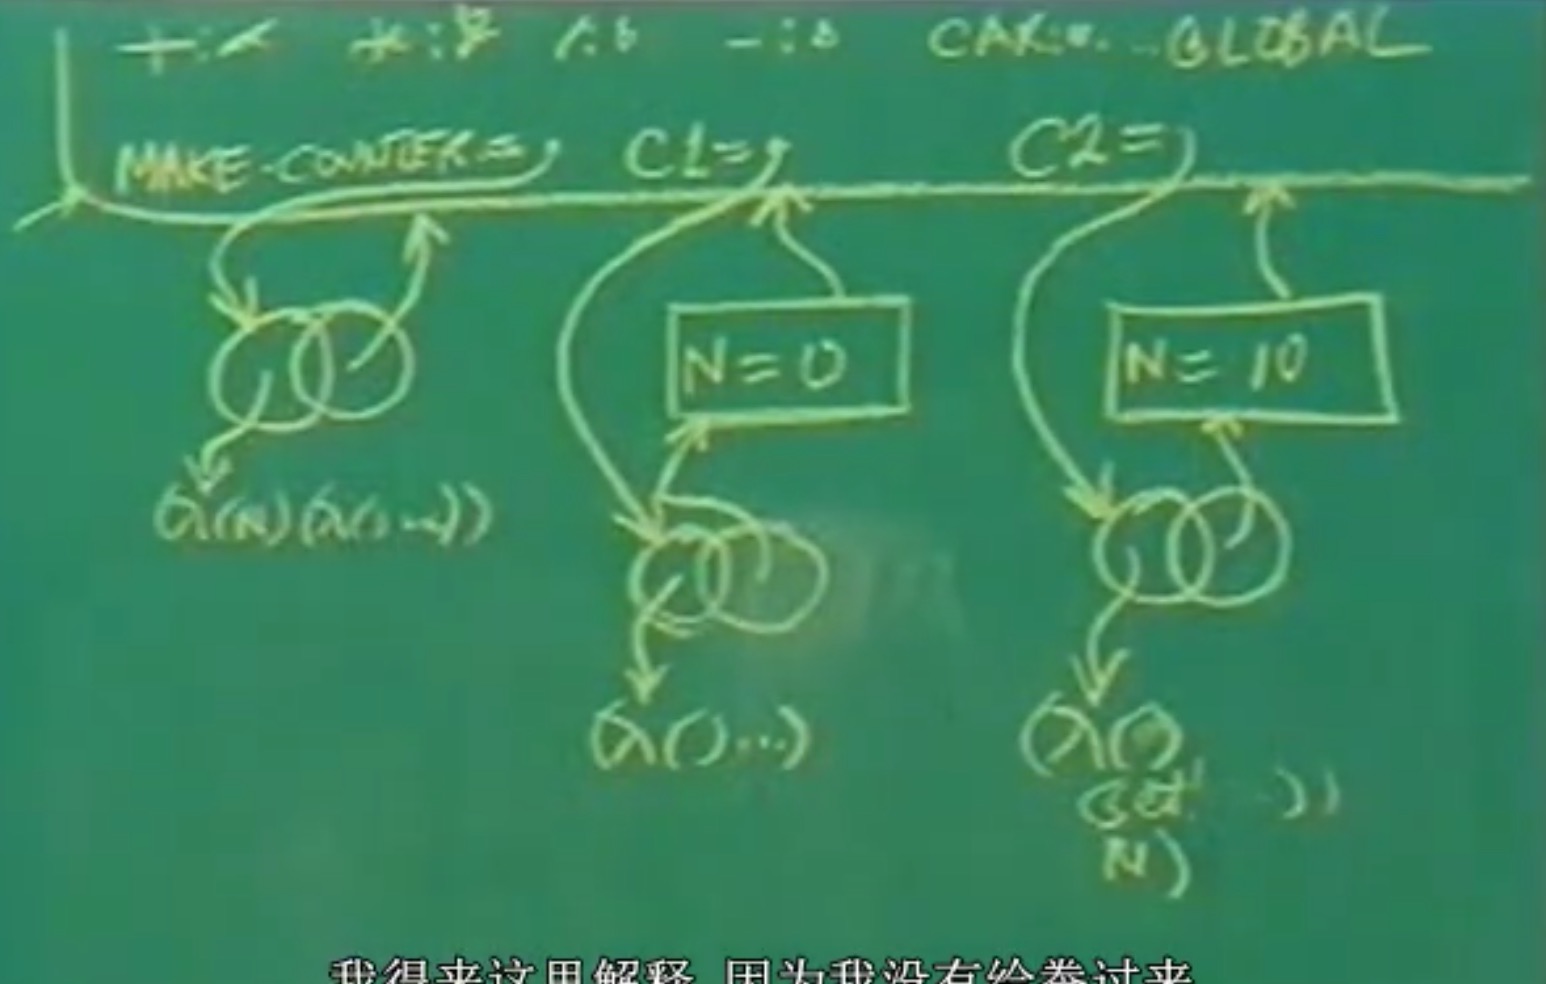 GLOBAL
MAKE-COUNTER= C1= C2=
N=0 N=10
(λ(N)(λ()...))
(λ()...)
(λ()
(set! ...))
N)
我得来这里解释 因为我没有绘卷过来